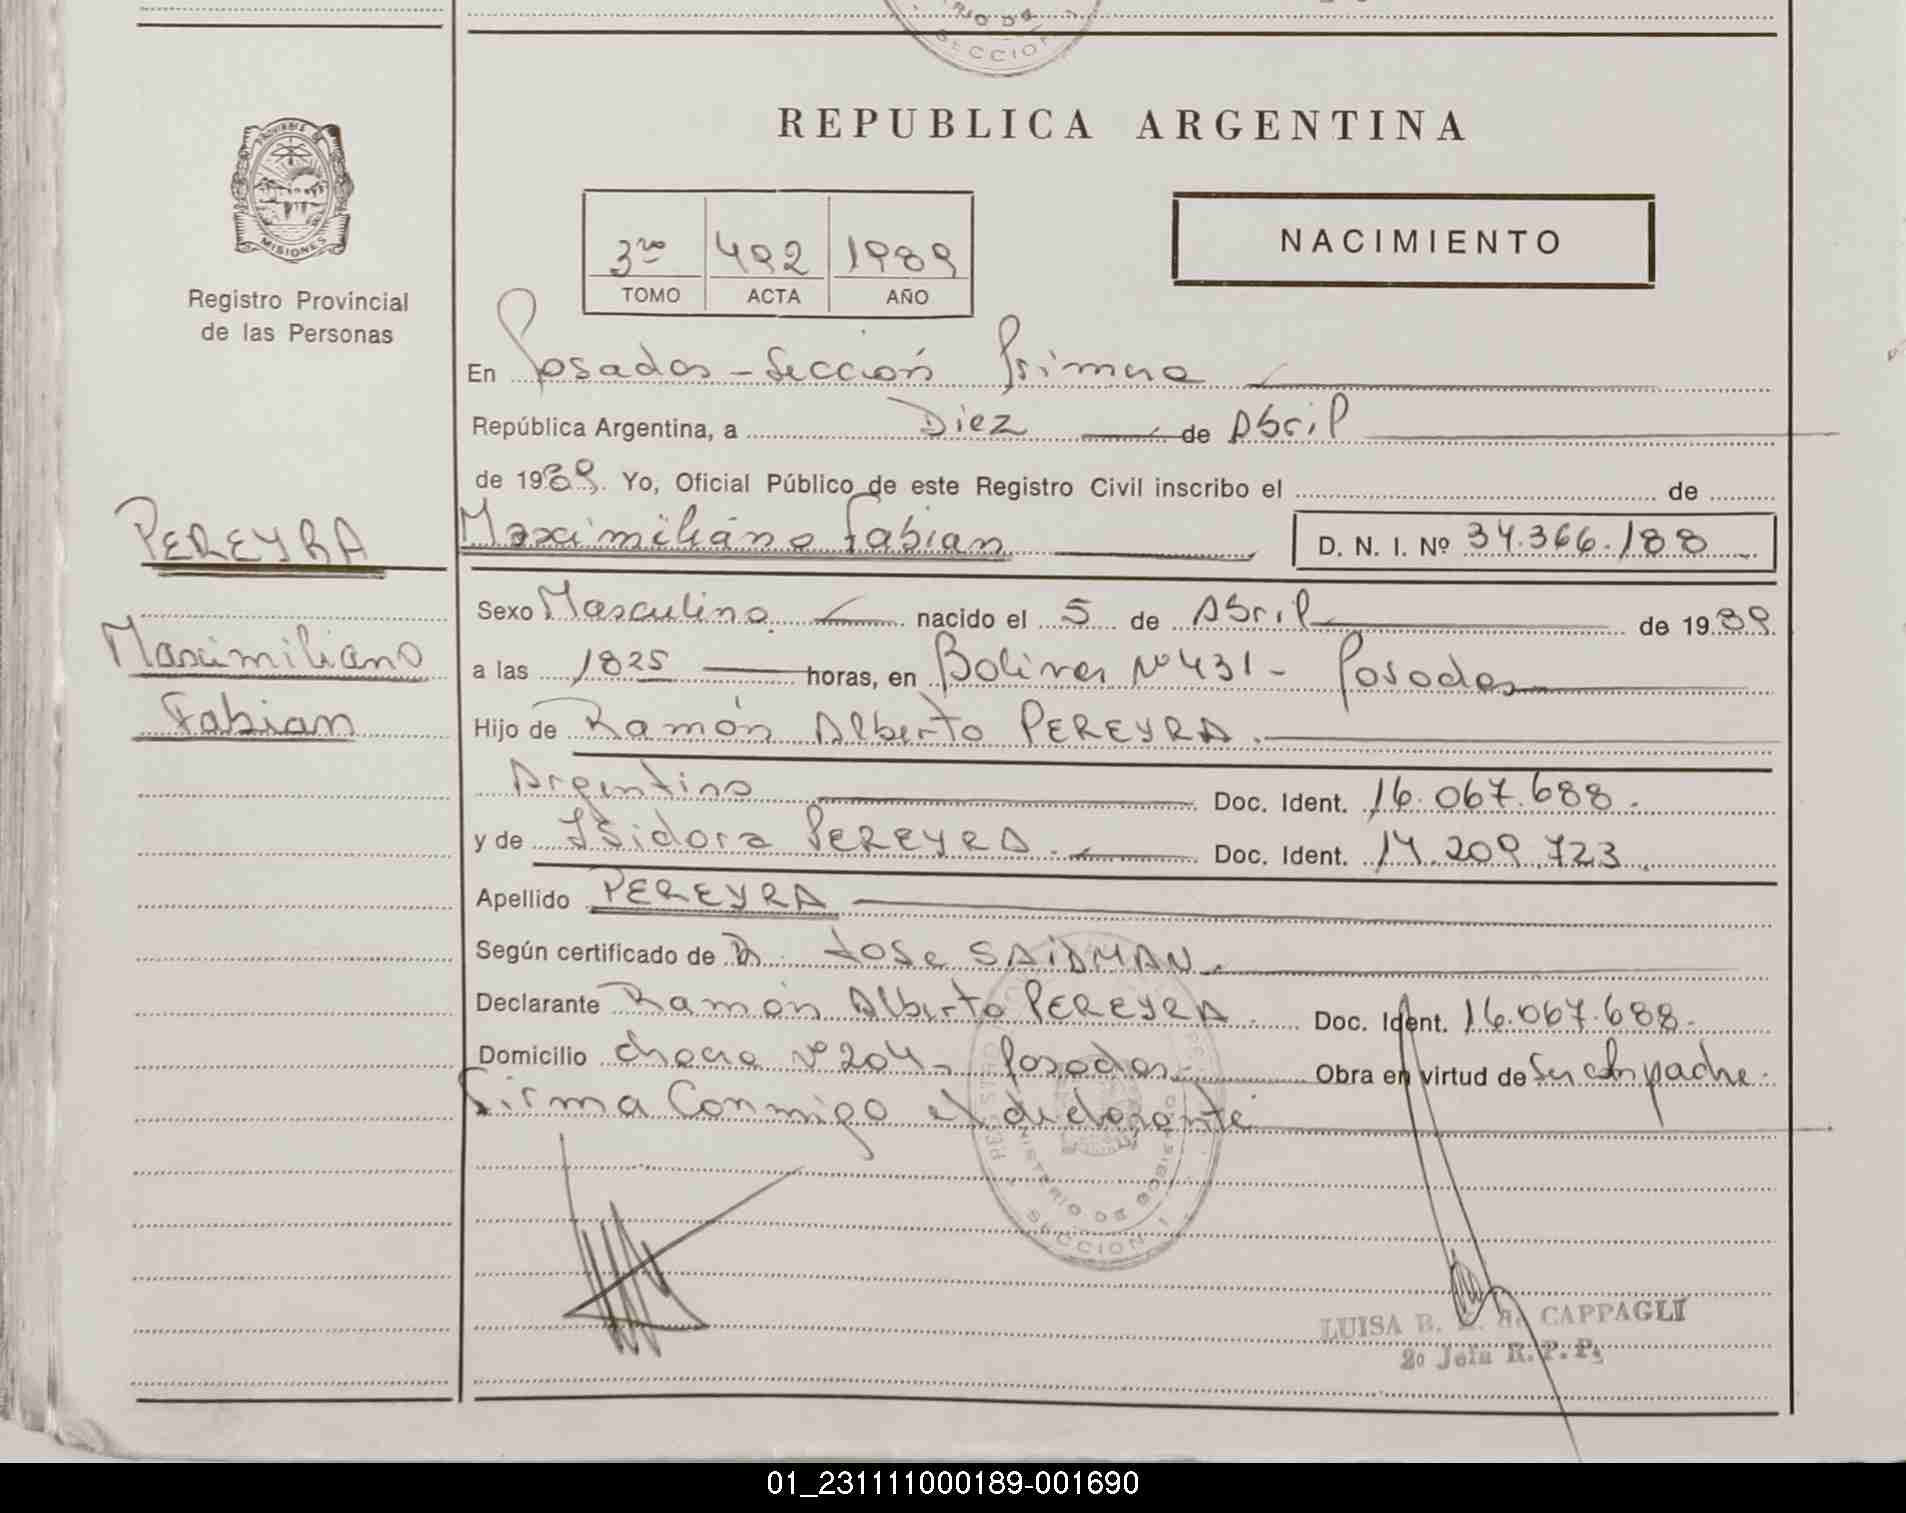 RIO DE
SECCION 1
REPUBLICA ARGENTINA
PROVINCIA DE
MISIONES
Registro Provincial
de las Personas
3ro 492 1989
TOMO ACTA AÑO
NACIMIENTO
En Posadas - Sección Primera
República Argentina, a Diez de Abril
de 1989. Yo, Oficial Público de este Registro Civil inscribo el de
PEREYRA
Maximiliano Fabian D. N. I. Nº 34.366.188
Sexo Masculino nacido el 5 de Abril de 1989
Maximiliano
a las 1825 horas, en Bolivar Nº 431 - Posadas
Fabian
Hijo de Ramón Alberto PEREYRA.
Argentino Doc. Ident. 16.067.688.
y de Isidora PEREYRA. Doc. Ident. 14.209.723.
Apellido PEREYRA
Según certificado de Dr. Jose SAIDMAN.
Declarante Ramón Alberto PEREYRA. Doc. Ident. 16.067.688.
Domicilio chacra Nº 204 - Posadas Obra en virtud de Ser el padre.
Firma Conmigo el declarante
MINISTERIO DE GOBIERNO
SECCION 1
LUISA B. de CAPPAGLI
2º Jefa R.P.P.
01_231111000189-001690